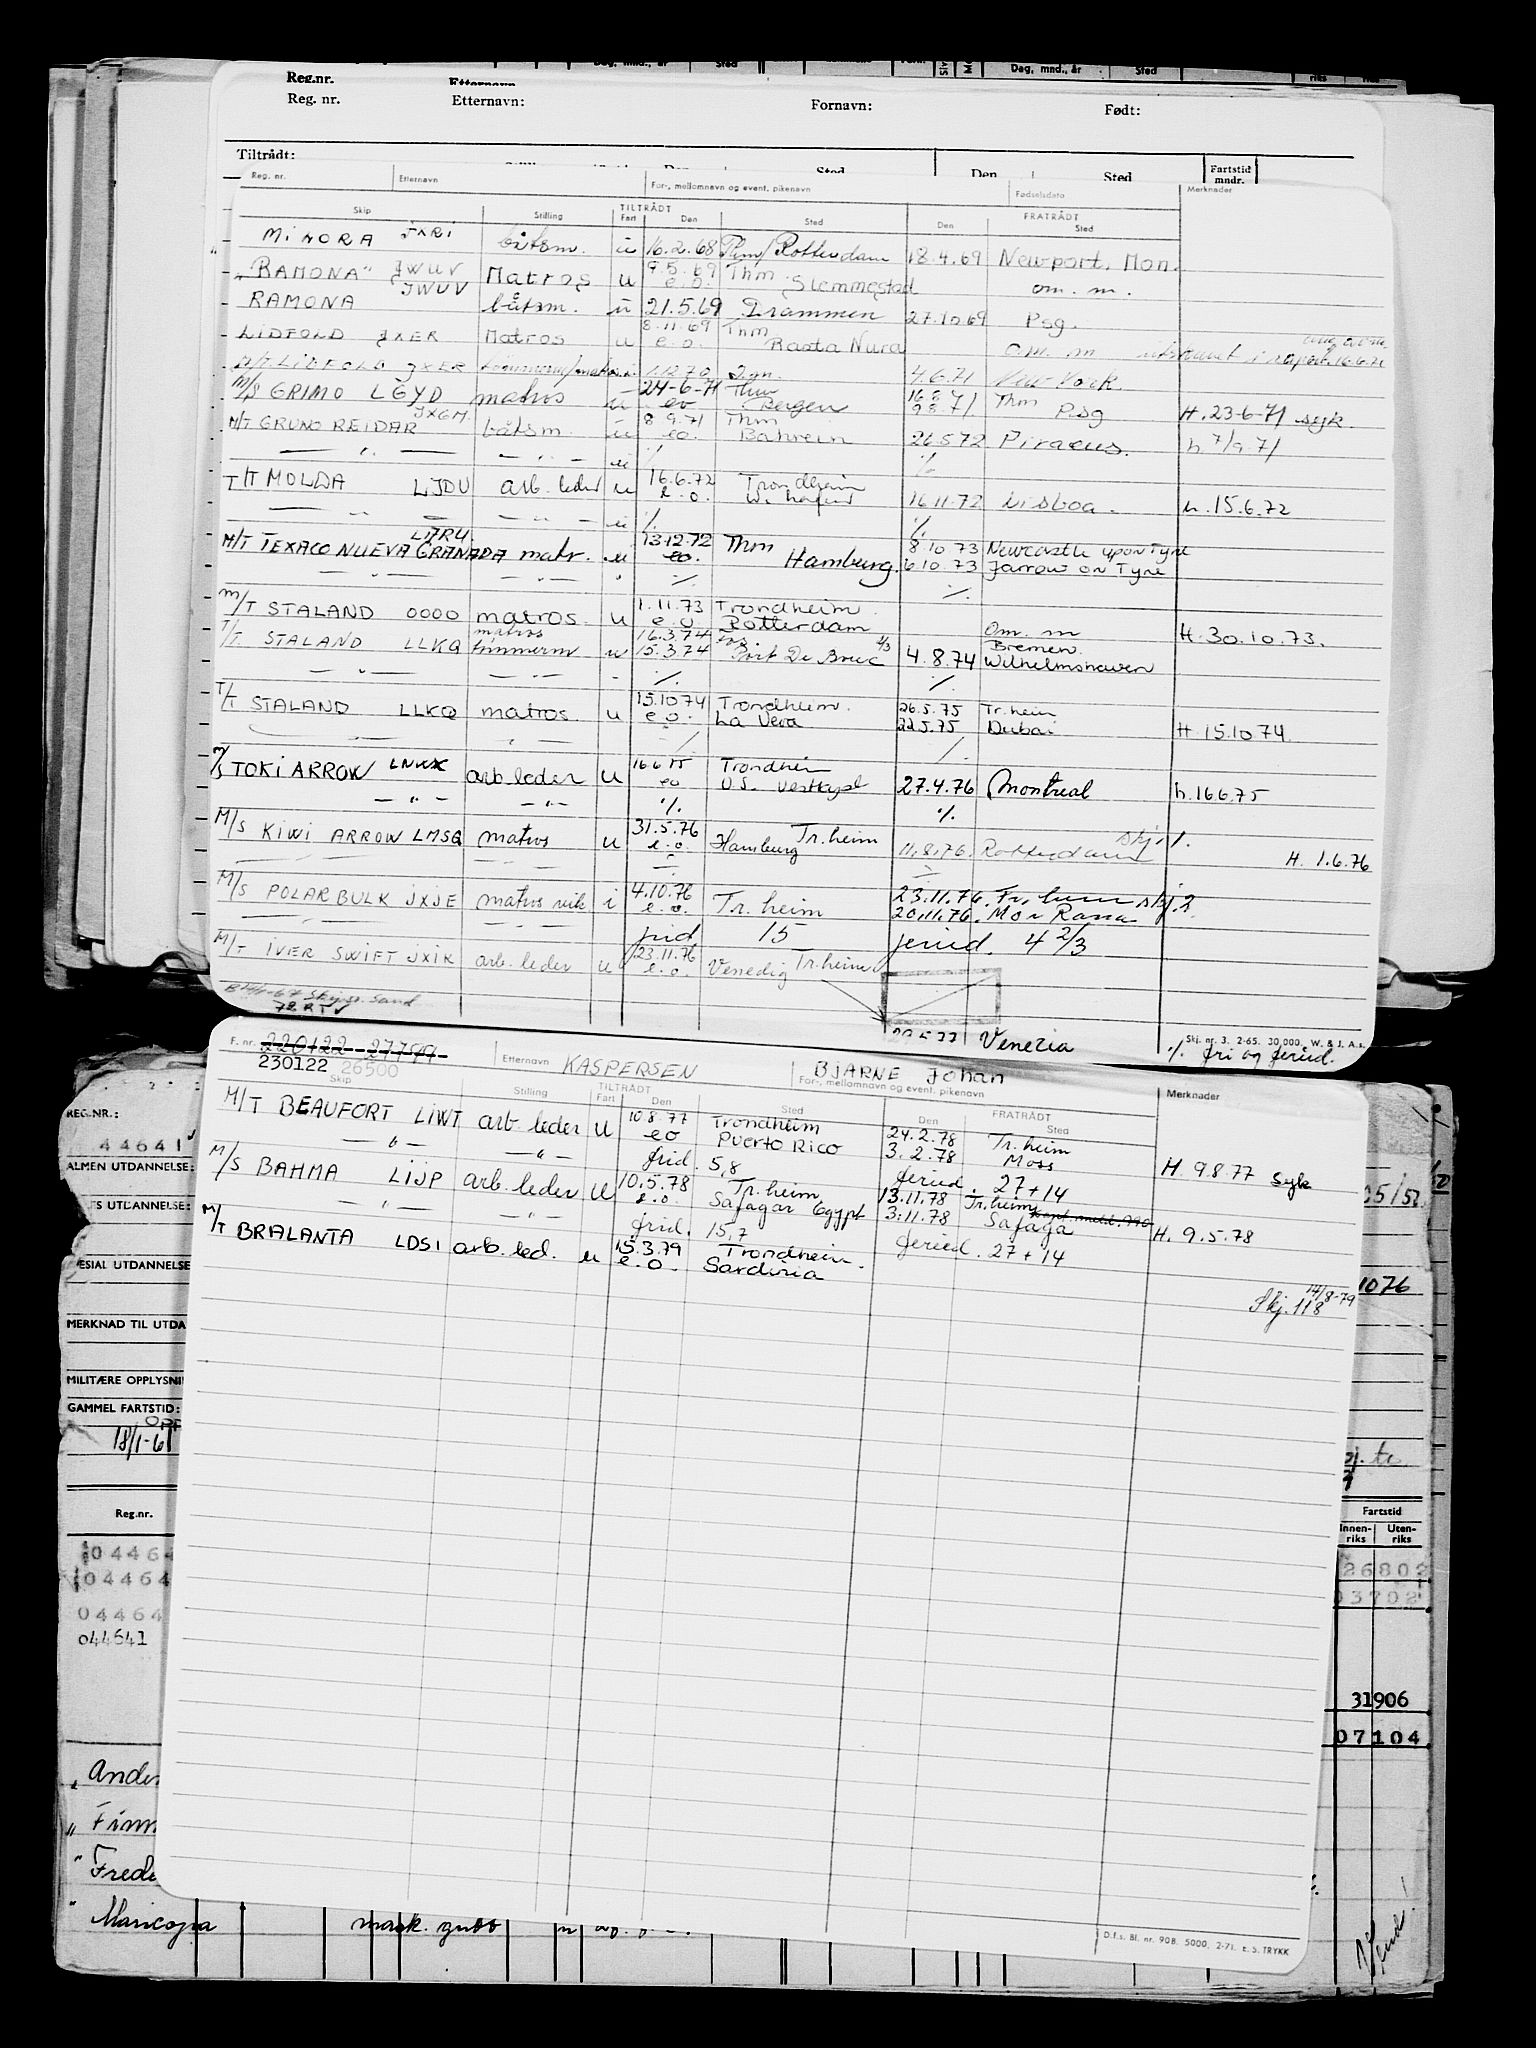 Dag. mnd., år Sted Dag. mnd., år Sted
Reg.nr. Etternavn
Reg. nr. Etternavn: Fornavn: Født:
Tiltrådt: Den Sted Den Sted Fartstid mndr.
Reg. nr. Etternavn For-, mellomnavn og event. pikenavn Fødselsdato Merknader
Skip Stilling TILTRÅDT Fart Den Sted Den FRATRÅDT Sted
MINORA JXRI båtsm. u 16.2.68 Rotterdam 18.4.69 Newport. Mon.
"RAMONA" JWUV Matros u 9.5.69 e.o. Thm. Slemmestad om. m.
RAMONA JWUV båtsm. u 21.5.69 Drammen 27.10.69 Psg.
LIDFOLD JXER Matros u 8.11.69 e.o. Thm Rasta Nura om. m
M/T LIDFOLD JXER 4.6.71 New York
M/S GRIMO LGYD matros u 24-6-71 eo Thm Bergen Thm Psg H. 23-6-71 syk.
M/T GRUNO REIDAR JXGM. båtsm. u 8.9.71 eo. Thm Bahrein 26.5.72 Piraeus. h 7/9.71
— " — — " — u ./. ./.
T/T MOLDA LJDU arb. leder u 16.6.72 e.o. Trondheim W. hafen 16.11.72 Lisboa. h. 15.6.72
— — — " — u ./. ./.
M/T TEXACO NUEVA GRANADA matr. u 13.12.72 eo. Thm Hamburg. 8.10.73 Newcastle upon Tyne
6.10.73 Jarrow on Tyne
— " — — " — " ./. ./.
M/T STALAND 0000 matros. u 1.11.73 e.o. Trondheim. Rotterdam Om. m H. 30.10.73.
T/T STALAND LLKQ matros tømmerm u 16.3.74 15.3.74 Port De Bouc 4.8.74 Bremen. Wilhelmshaven
— " — — " — - ./. ./.
T/T STALAND LLKQ matros. u 15.10.74 e.o. Trondheim. La Vera 26.5.75 Tr.heim
22.5.75 Dubai H 15.10.74.
./. ./.
M/S TOKI ARROW LNWX arb.leder u 16.6.75 eo Trondheim U.S. Vestkyst 27.4.76 Montreal h. 16.6.75
— " — — " — ./. ./.
M/S KIWI ARROW LMSQ matros u 31.5.76 e.o. Tr.heim Hamburg 11.8.76. Rotterdam skj. 1. H. 1.6.76
M/S POLARBULK JXJE matros i 4.10.76 e.o. Tr. heim 23.11.76. Tr. heim skj. 2.
20.11.76. Mo i Rana
— " — — " — frid. 15 feried. 4 2/3
M/T IVER SWIFT JXIK arb. leder u 23.11.76 e.o. Venedig Tr.heim
Venezia
Skj. nr. 3. 2-65. 30,000. W. & J. A.s.
./. fri og feried.
F. nr. 220122 27799
230122 26500 Etternavn KASPERSEN BJARNE Johan
For-, mellomnavn og event. pikenavn Merknader
Skip Stilling TILTRÅDT Fart Den Sted Den FRATRÅDT Sted
M/T BEAUFORT LIWT arb. leder u 10.8.77 eo Trondheim Puerto Rico 24.2.78 Tr. heim
3.2.78 Moss H. 9.8.77 Syk
— " — — " — frid. 5,8 feried. 27+14
M/S BAHMA LIJP arb. leder u 10.5.78 e.o. Tr. heim Safagar Egypt 13.11.78 Tr.heim
3.11.78 Safaga H. 9.5.78
— " — — " — frid. 15,7 feried. 27+14
M/T BRALANTA LDSI arb. led. u 15.3.79 e.o. Trondheim. Sardinia
Skj. 118 14/8-79
D.f.s. Bl. nr. 90B. 5000. 2-71. E.S. TRYKK
REG.NR.:
44641
ALMEN UTDANNELSE:
TS UTDANNELSE: 05/52
ESIAL UTDANNELSE
1076
MERKNAD TIL UTDA
MILITÆRE OPPLYSNI
GAMMEL FARTSTID:
OPP
18/1-61
Reg.nr. Fartstid
Innen-riks Uten-riks
04464 26802
04464 03702
04464
044641
31906
07104
" Ander
" Finn
" Frede
" Maricopa mask. gutt
Vend!